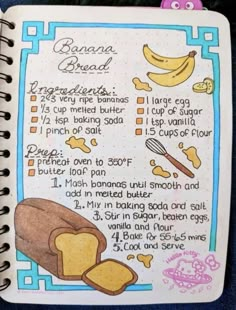 Banana
Bread
Ingredients:
2-3 very ripe bananas
1/3 cup melted butter
1/2 tsp baking soda
1 pinch of salt
1 large egg
1 cup of sugar
1 tsp vanilla
1.5 cups of flour
Prep:
preheat oven to 350°F
butter loaf pan
1. Mash bananas until smooth and
add in melted butter
2. Mix in baking soda and salt
3. Stir in sugar, beaten eggs,
vanilla and flour
4. Bake for 55-65 mins
5. Cool and serve